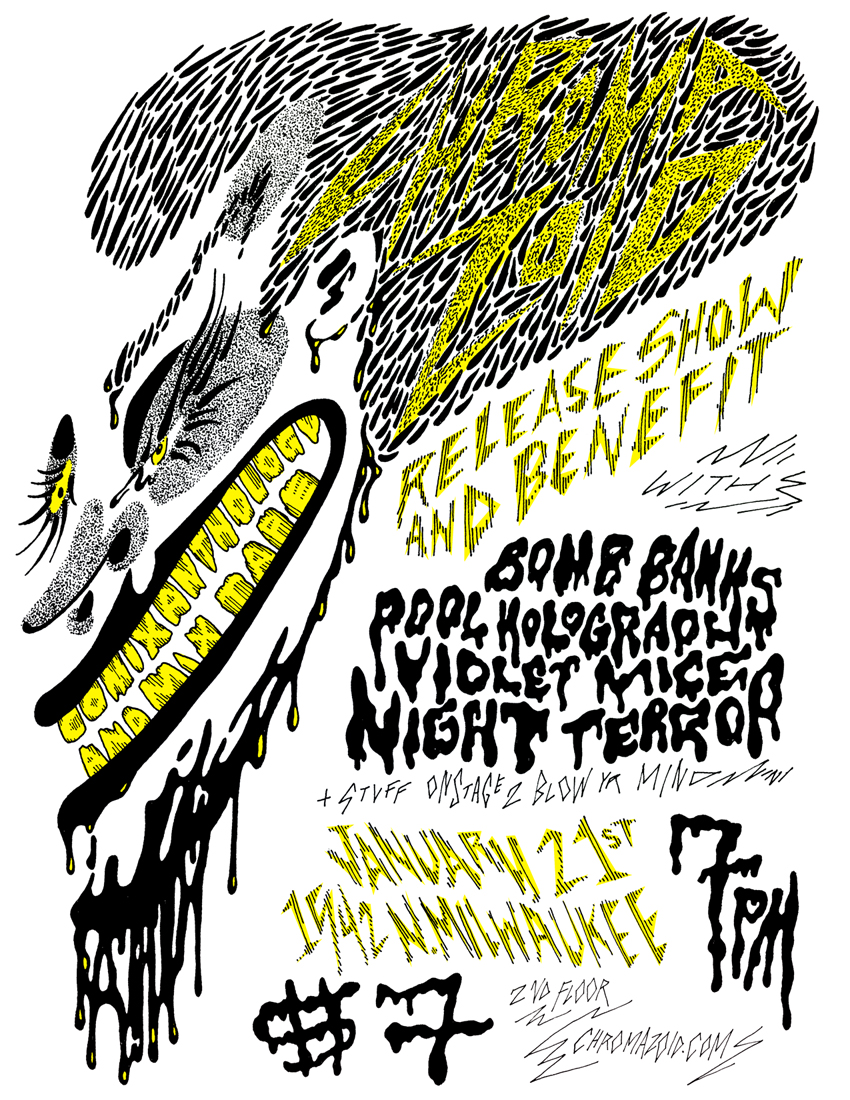 CHROMA
ZOID
RELEASE SHOW
AND BENEFIT
WITH
COMIX ANTHOLOGY
AND MIX
BOMB BANKS
POOL HOLOGRAPH
VIOLET MICE
NIGHT TERROR
+ STUFF ONSTAGE 2 BLOW YR MIND
JANUARY 21ST
1542 N. MILWAUKEE
7PM
$7
2ND FLOOR
CHROMAZOID.COM